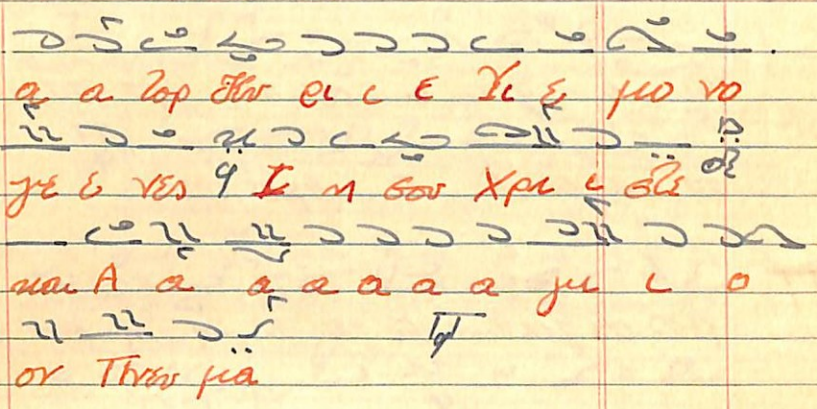 α α τορ Κυ ρι ι ε Υι ε μο νο
γε ε νες Ι η σου Χρι ι στε
και Α α α α α α α γι ι ο
ον Πνευ μα